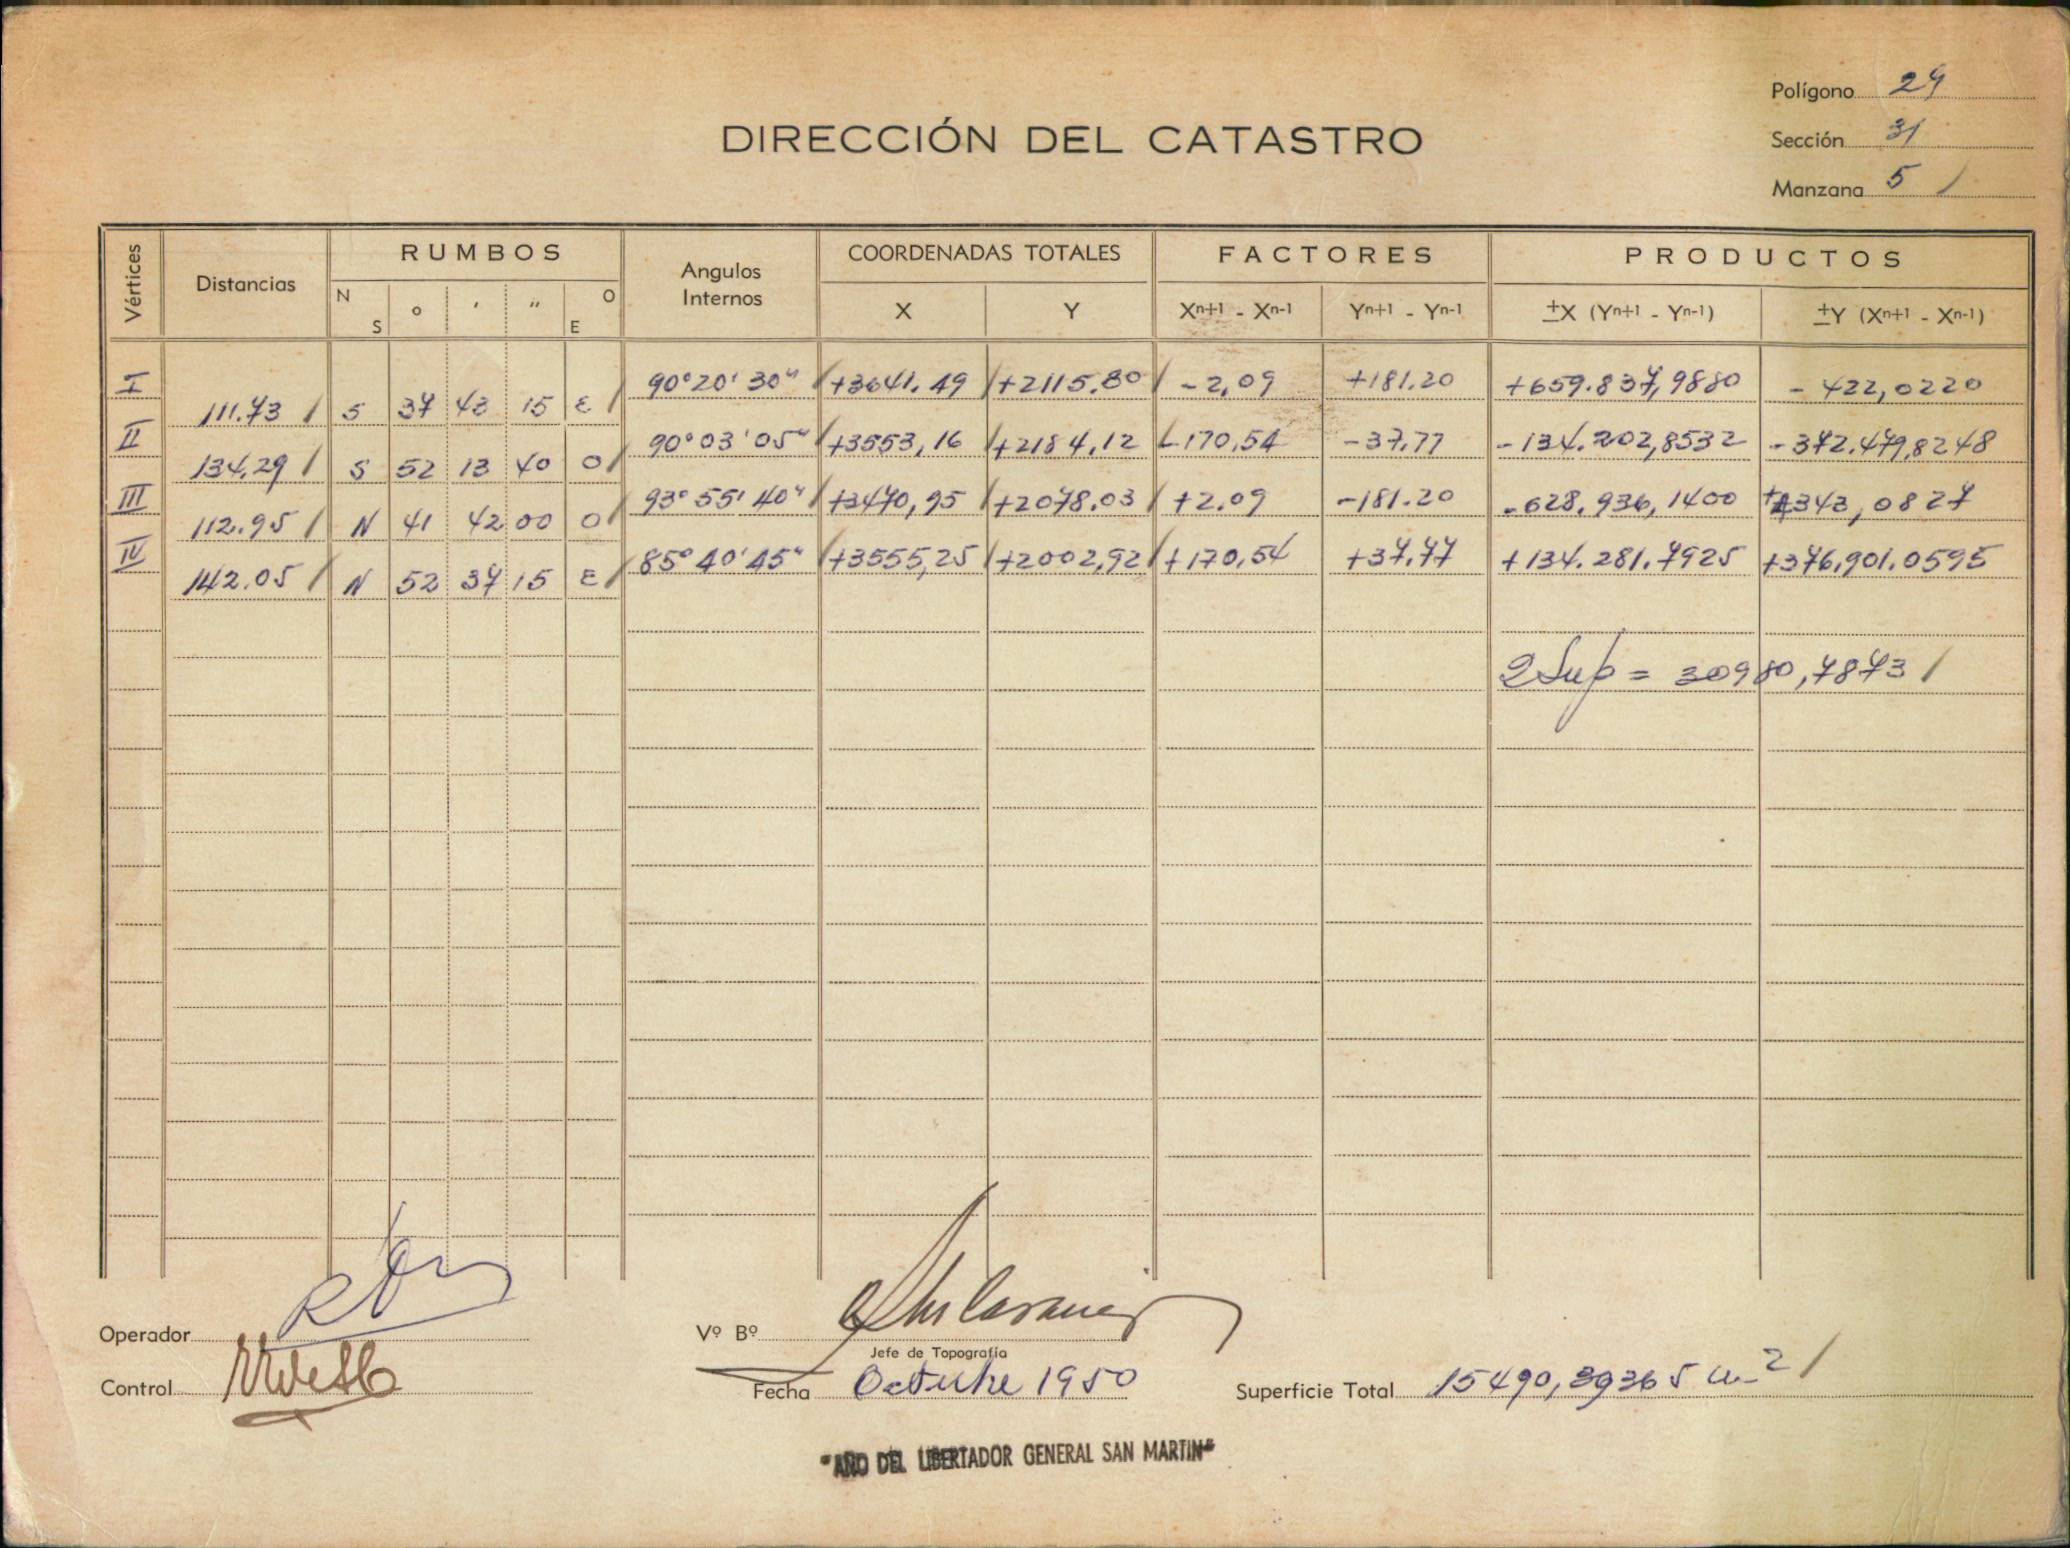 Polígono 24
DIRECCIÓN DEL CATASTRO
Sección 31
Manzana 5 /
Vértices
Distancias
RUMBOS
N S ° ' " O E
Angulos Internos
COORDENADAS TOTALES
X Y
FACTORES
Xn+1 - Xn-1 Yn+1 - Yn-1
PRODUCTOS
±X (Yn+1 - Yn-1) ±Y (Xn+1 - Xn-1)
I 90°20'30" / +3641.49 / +2115.80 / -2,09 +181.20 +659.837,9880 - 422,0220
111.73 / S 37 43 15 E /
II 90°03'05" / +3553,16 / +2184,12 / -170,54 -37,77 -134.202,8532 -372.479,8248
134,29 / S 52 13 40 O /
III 93°55'40" / +3470,95 / +2078.03 / +2.09 -181.20 -628.936,1400 +4343,0827
112.95 / N 41 42 00 O /
IV 85°40'45" / +3555,25 / +2002,92 / +170,54 +37,77 +134.281.7925 +376,901.0595
142.05 / N 52 37 15 E /
2 Sup = 30980,7873 /
Operador
Vº Bº
Jefe de Topografía
Control
Fecha Octubre 1950
Superficie Total 15490,39365 m² /
"AÑO DEL LIBERTADOR GENERAL SAN MARTIN"